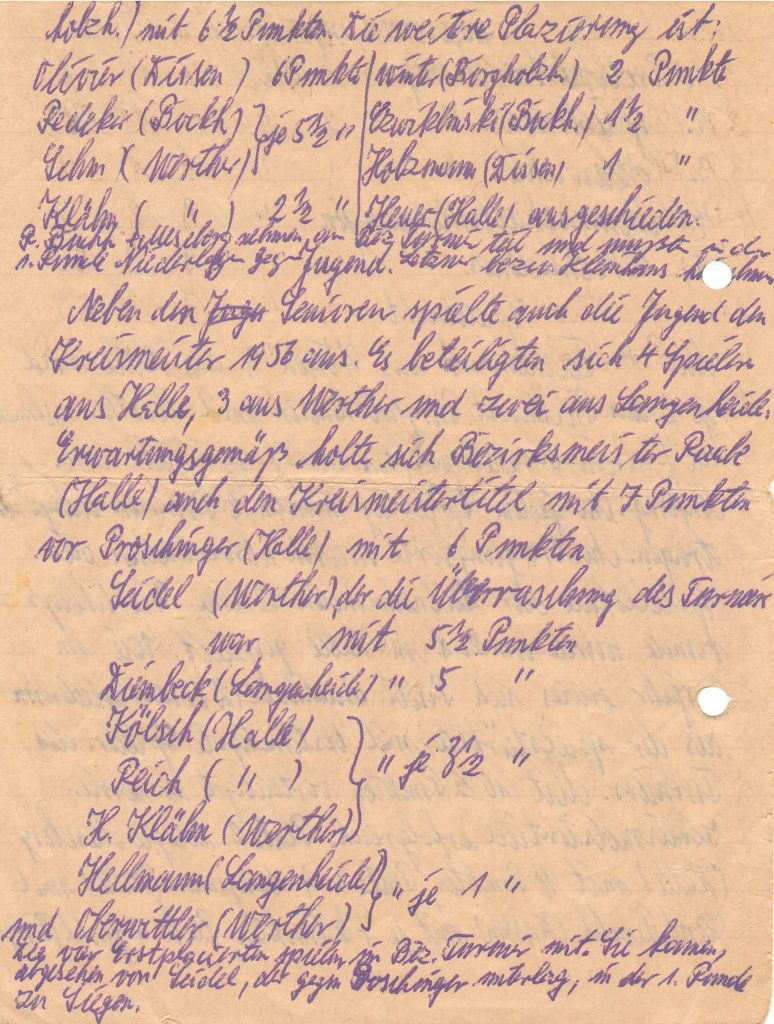 holzh.) mit 6 ½ Punkten. Die weitere Plazierung ist:
Olivier (Dissen) 6 Punkte | Winter (Borgholzh.) 2 Punkte
Bedeker (Bockh.) } je 5 ½ " | (Bockh.) 1 ½ "
Sehm (Werther) | Holzmann (Dissen) 1 "
Klähm ( " ) 2 ½ " | Heuer (Halle) ausgeschieden.
nehmen am Bez. Turnier teil und mußten in der
1. Runde Niederlagen gegen Jugend. bezw. Kleinhans
Neben den Senioren spielte auch die Jugend den
Kreismeister 1956 aus. Es beteiligten sich 4 Spieler
aus Halle, 3 aus Werther und zwei aus Langenheide.
Erwartungsgemäß holte sich Bezirksmeister Raabe
(Halle) auch den Kreismeistertitel mit 7 Punkten
vor Proschinger (Halle) mit 6 Punkten
Seidel (Werther) der die Überraschung des Turniers
war mit 5 ½ Punkten
Diembeck (Langenheide) " 5 "
Kölsch (Halle)
Reich ( " ) } " je 3 ½ "
H. Klähm (Werther)
Hellmann (Langenheide) } " je 1 "
und Oberwittler (Werther)
Die vier Erstplacierten spielen im Bez. Turnier mit. Sie kamen,
abgesehen von Seidel, der gegen Boschinger unterlag, in der 1. Runde
zu Siegen.